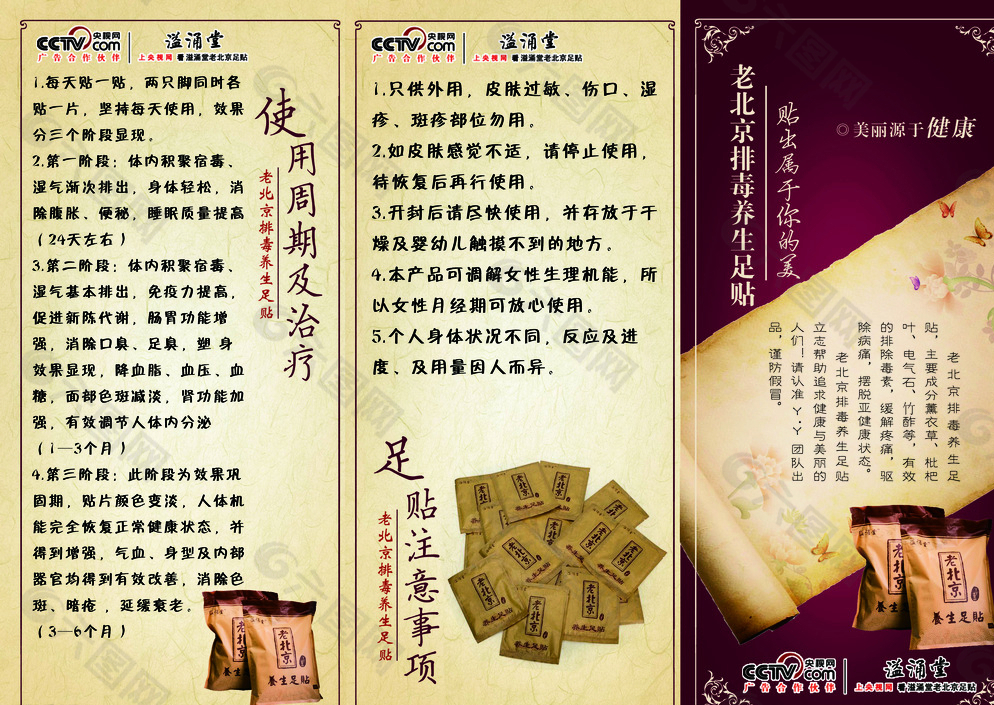 CCTV.com 央视网
广告合作伙伴
溢涌堂
上央视网 看溢涌堂老北京足贴
1.每天贴一贴，两只脚同时各
贴一片，坚持每天使用，效果
分三个阶段显现。
2.第一阶段：体内积聚宿毒、
湿气渐次排出，身体轻松，消
除腹胀、便秘，睡眠质量提高
（24天左右）
3.第二阶段：体内积聚宿毒、
湿气基本排出，免疫力提高，
促进新陈代谢，肠胃功能增
强，消除口臭、足臭，塑 身
效果显现，降血脂、血压、血
糖，面部色斑减淡，肾功能加
强，有效调节人体内分泌
（1—3个月）
4.第三阶段：此阶段为效果巩
固期，贴片颜色变淡，人体机
能完全恢复正常健康状态，并
得到增强，气血、身型及内部
器官均得到有效改善，消除色
斑、暗疮 ，延缓衰老。
（3—6个月）
使用周期及治疗
老北京排毒养生足贴
老北京
养生足贴
CCTV.com 央视网
广告合作伙伴
溢涌堂
上央视网 看溢涌堂老北京足贴
1.只供外用，皮肤过敏、伤口、湿
疹、斑疹部位勿用。
2.如皮肤感觉不适，请停止使用，
待恢复后再行使用。
3.开封后请尽快使用，并存放于干
燥及婴幼儿触摸不到的地方。
4.本产品可调解女性生理机能，所
以女性月经期可放心使用。
5.个人身体状况不同，反应及进
度、及用量因人而异。
足贴注意事项
老北京排毒养生足贴
老北京
养生足贴
老北京排毒养生足贴
贴出属于你的美
◎美丽源于健康
老北京排毒养生足
贴，主要成分薰衣草、枇杷
叶、电气石、竹酢等，有效
的排除毒素，缓解疼痛，驱
除病痛，摆脱亚健康状态。
老北京排毒养生足贴
立志帮助追求健康与美丽的
人们！请认准丫丫团队出
品，谨防假冒。
老北京
养生足贴
CCTV.com 央视网
广告合作伙伴
溢涌堂
上央视网 看溢涌堂老北京足贴